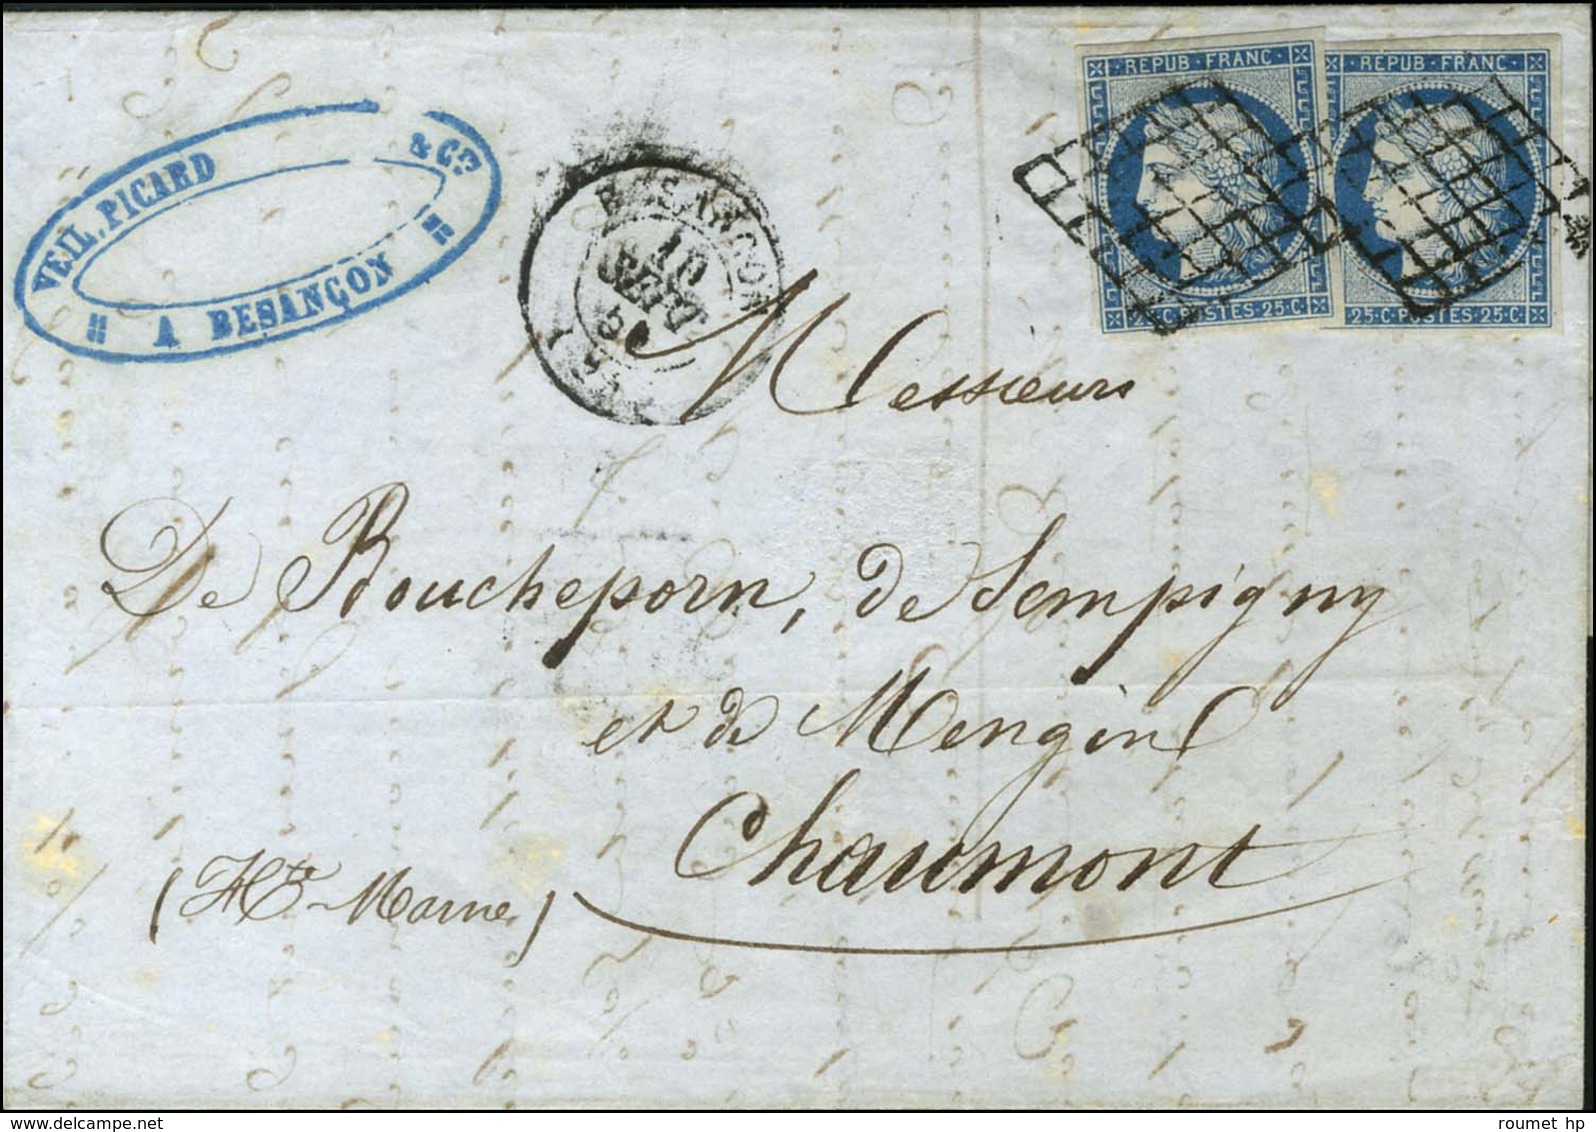 REPUB · FRANC ·
25 · C · POSTES · 25 · C
REPUB · FRANC ·
25 · C · POSTES · 25 · C
VEIL, PICARD & Cie
A BESANÇON
BESANÇON
10
SEPT
50
Messieurs
De Boucheporn, de Sempigny
et de Mengin
Chaumont
(Hte Marne)
roumet hp